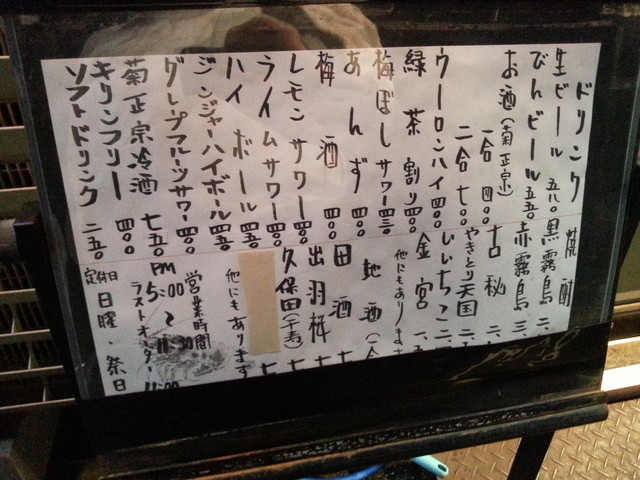 ドリンク
生ビール 五八〇
びんビール 五五〇
お酒(菊正宗)
一合 四〇〇
二合 七〇〇
ウーロンハイ 四〇〇
緑茶割り 四〇〇
梅ぼしサワー 四三〇
あんず 四〇〇
梅酒 四〇〇
レモンサワー 四〇〇
ライムサワー 四〇〇
ハイボール 四五〇
ジンジャーハイボール 四五〇
グレープフルーツサワー 四〇〇
菊正宗冷酒 七五〇
キリンフリー 四〇〇
ソフトドリンク 二五〇
焼酎
黒霧島 二、
赤霧島 三、
吉秘 二、
やきとり天国 二、
いいちこ 二、
金宮 一、
他にもあります
地酒(合
田酒 七
出羽桜 七
久保田(千寿) 七
他にもあります
営業時間
PM
5:00
〜
11:30
ラストオーダー
11:00
定休日 日曜・祭日